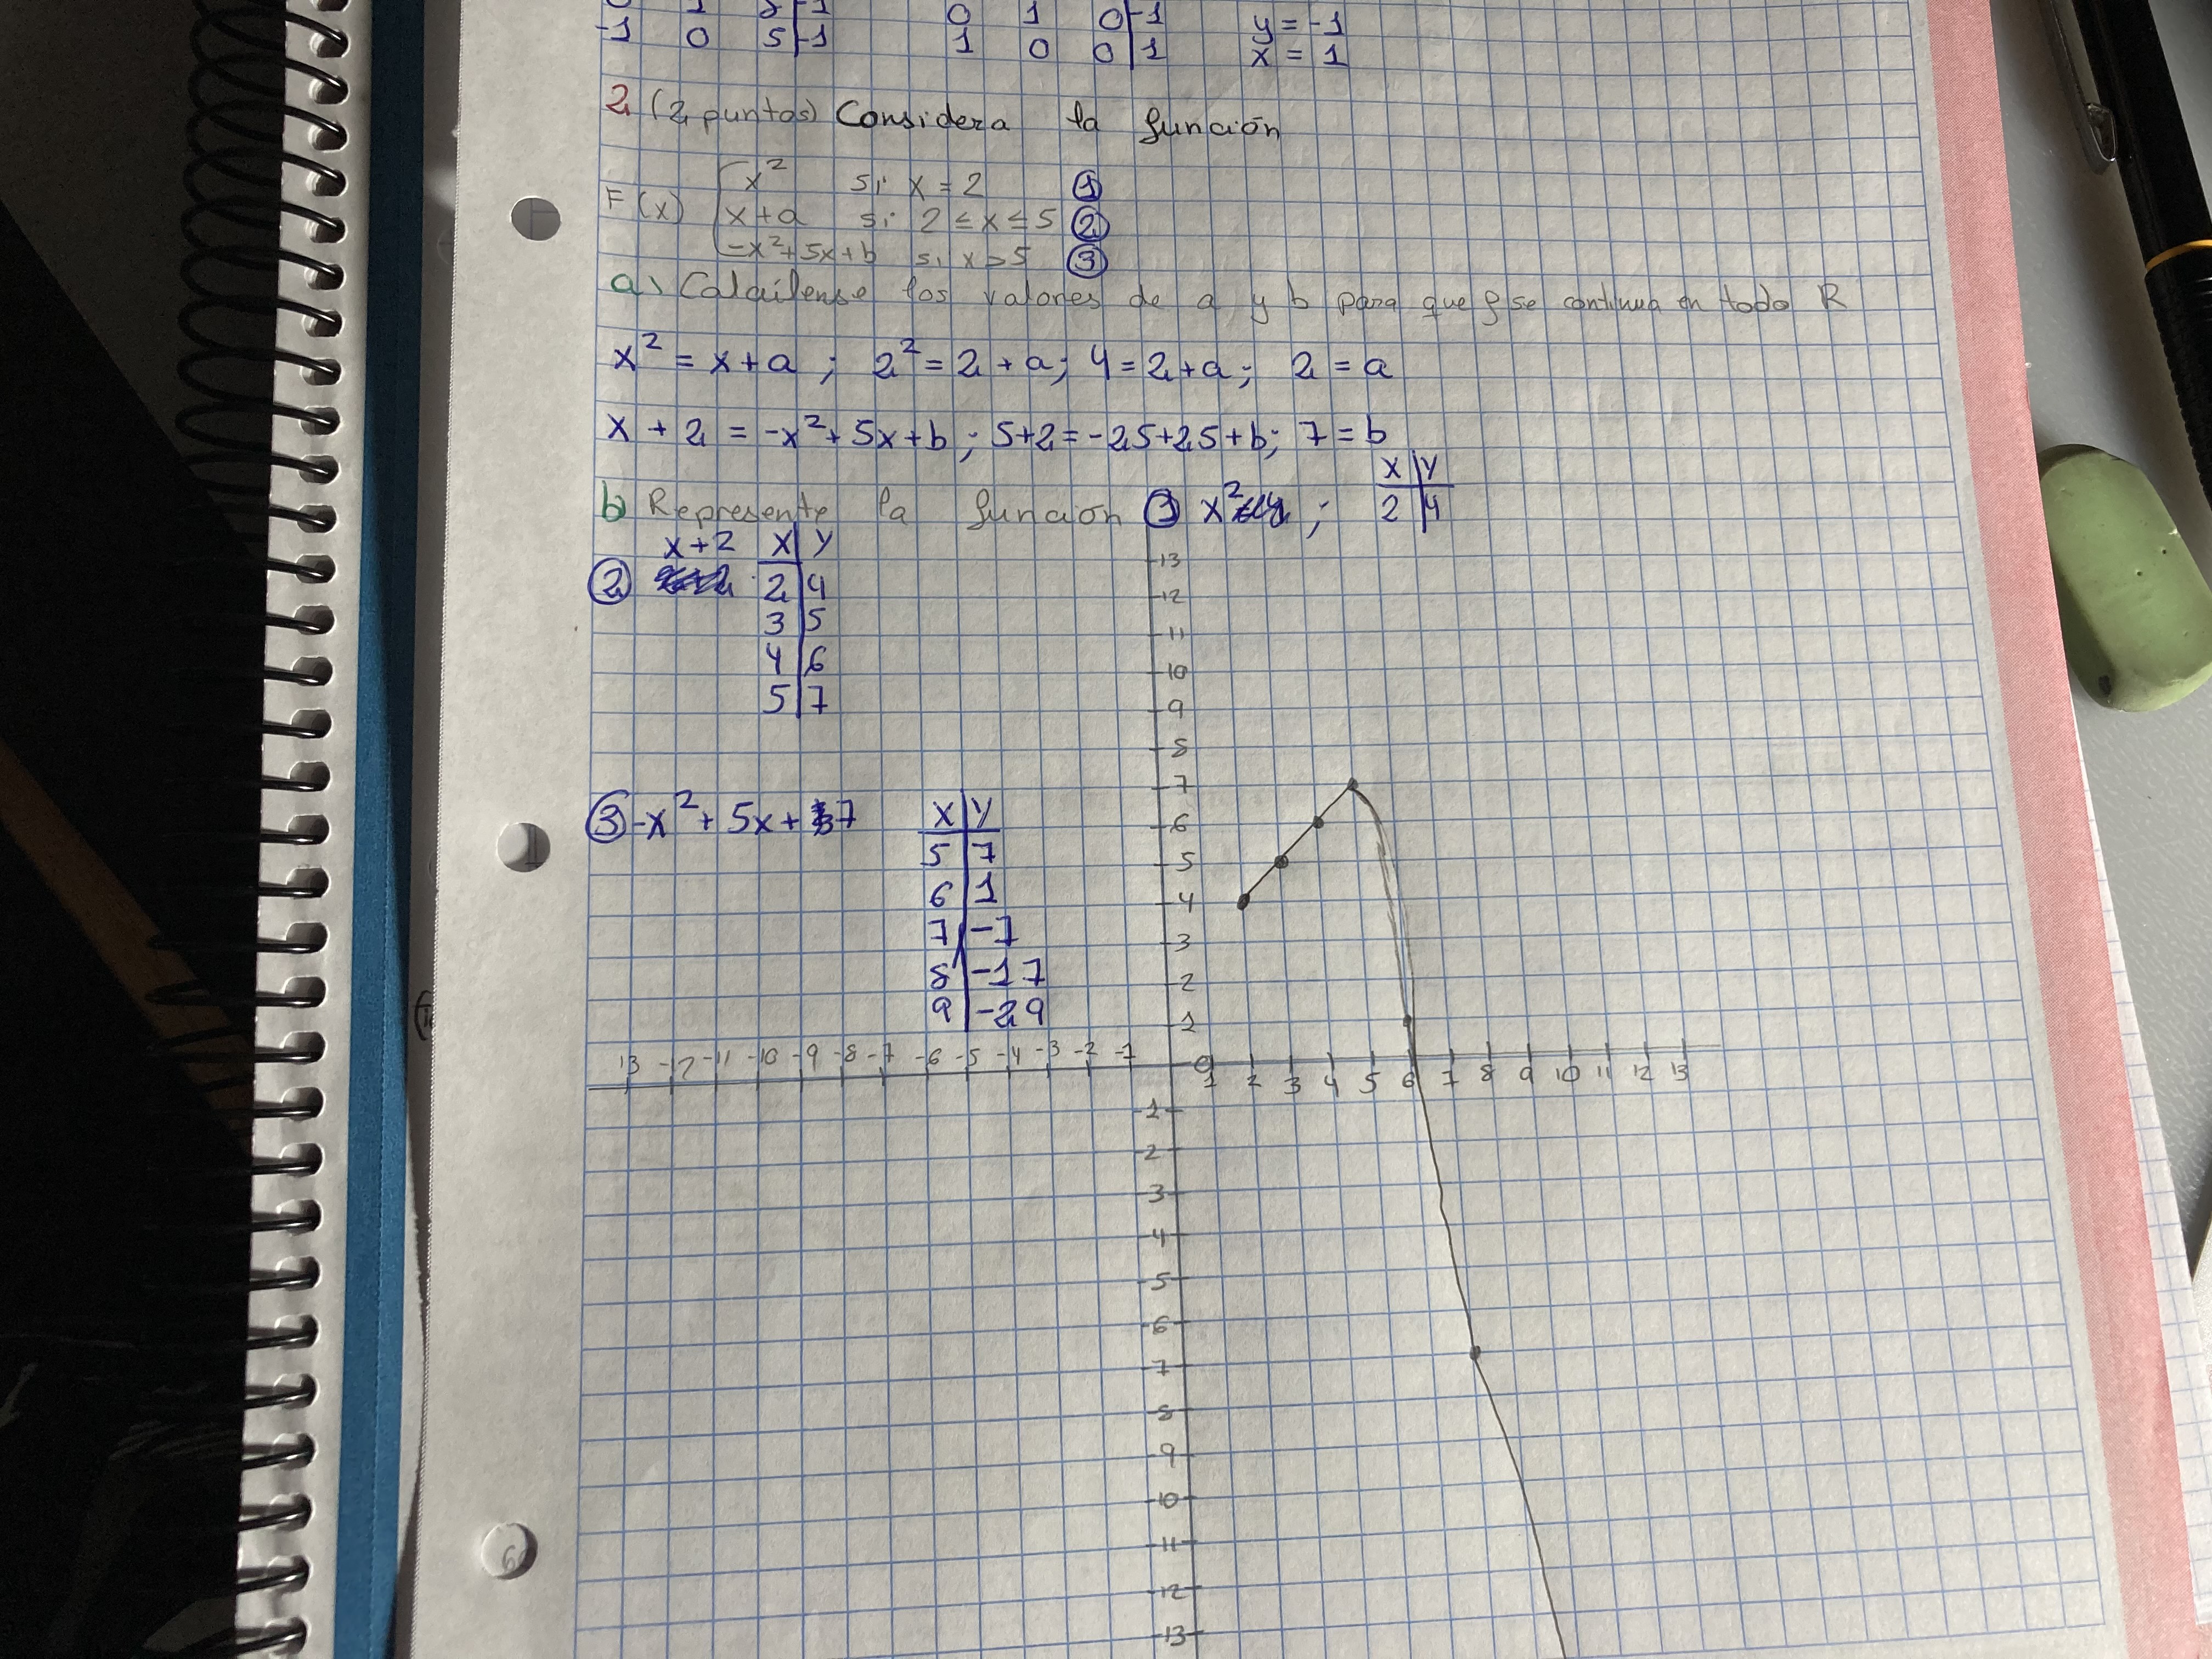 -1 0 5 | -1 1 0 0 | 1 x = 1
0 1 0 | -1 y = -1
2 (2 puntos) Considera la función
F(x) x² si x = 2 ①
x+a si 2 ≤ x ≤ 5 ②
-x²+5x+b si x > 5 ③
a) Calcúlense los valores de a y b para que f se continua en todo R
x² = x + a ; 2² = 2 + a ; 4 = 2 + a ; 2 = a
x + 2 = -x² + 5x + b ; 5+2 = -25+25+b ; 7 = b
b Represente la función ① x² ; x | y
2 | 4
x+2 x | y
② 2 | 4
3 | 5
4 | 6
5 | 7
③ -x² + 5x + 7 x | y
5 | 7
6 | 1
7 | -7
8 | -17
9 | -29
13
12
11
10
9
8
7
6
5
4
3
2
1
13 -12 -11 -10 -9 -8 -7 -6 -5 -4 -3 -2 -1 0 1 2 3 4 5 6 7 8 9 10 11 12 13
-1
-2
-3
-4
-5
-6
-7
-8
-9
-10
-11
-12
-13